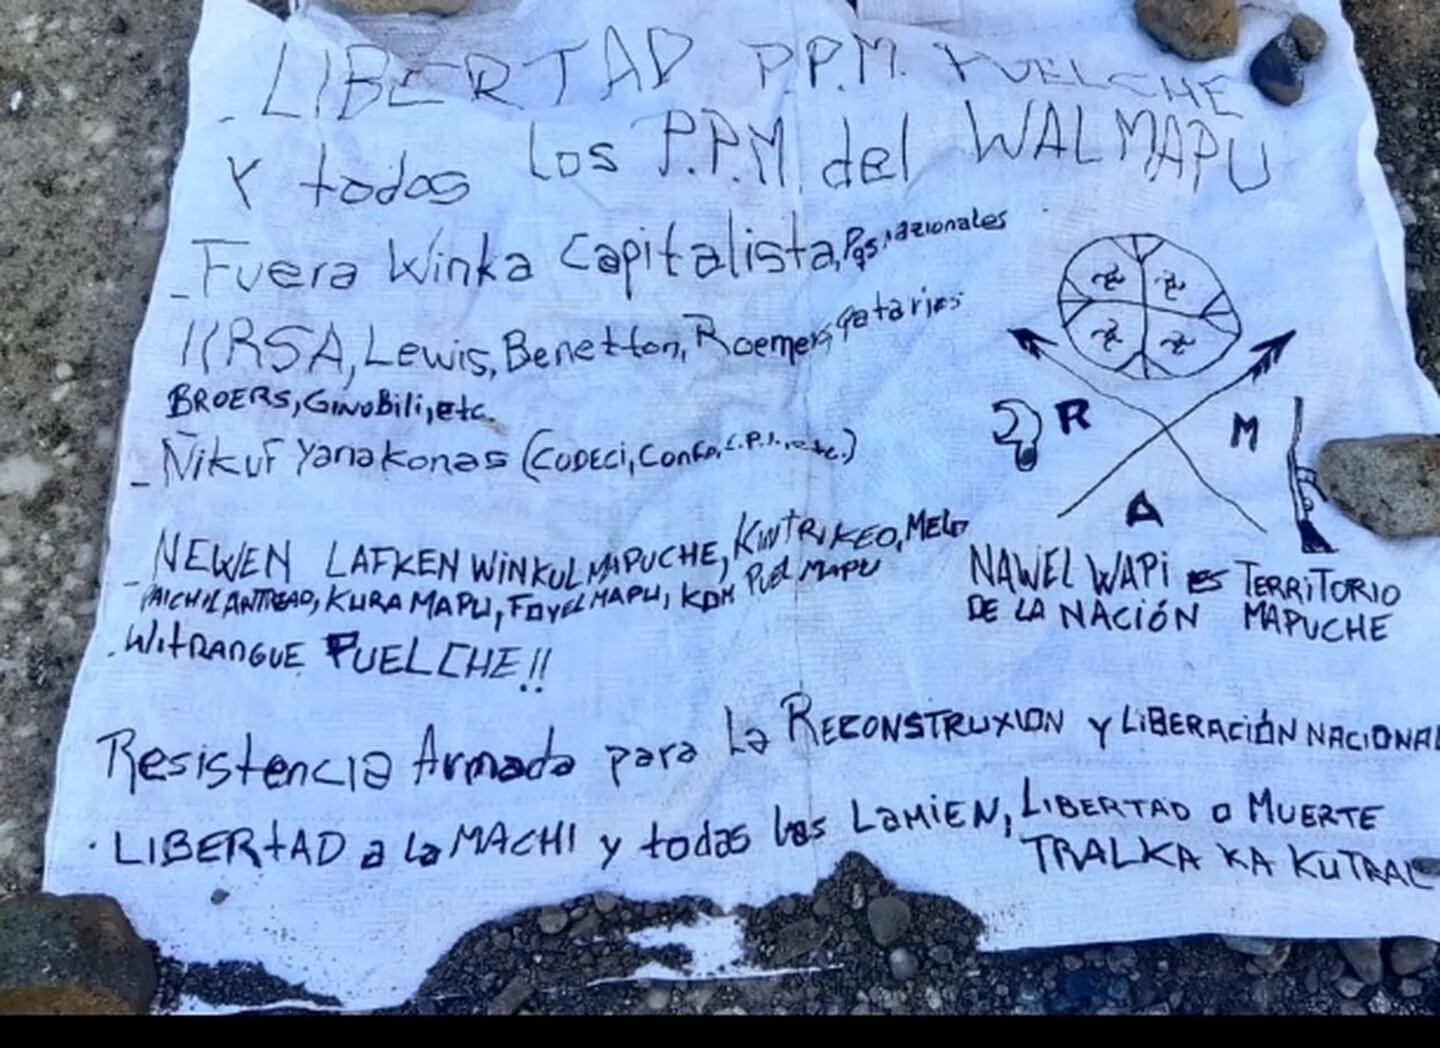 - LIBERTAD P.P.M. PUELCHE
Y todos los P.P.M. del WALMAPU
- Fuera Winka Capitalista,
IIRSA, Lewis, Benetton, Roemers, qataries
BROERS, GINOBili, etc.
- Ñikuf Yanakonas (CODECi, Confa, C.P.I., etc.)
- NEWEN LAFKEN WINKUL MAPUCHE, KWTRIKEO, MELO
PAICHIL ANTREAO, KURA MAPU, FOYEL MAPU, KDM PUEL MAPU
. WitRANGUE PUELCHE!!
R M
A
NAWEL WAPi es TERRiTORIO
DE LA NACiÓN MAPUCHE
Resistencia Armada para La RECONSTRUXION y LiBERACiÓN NACIONAL
· LIBERtAD a la MACHI y todas las LAMIEN, LIBERTAD o MUERTE
TRALKA KA KUTRAL